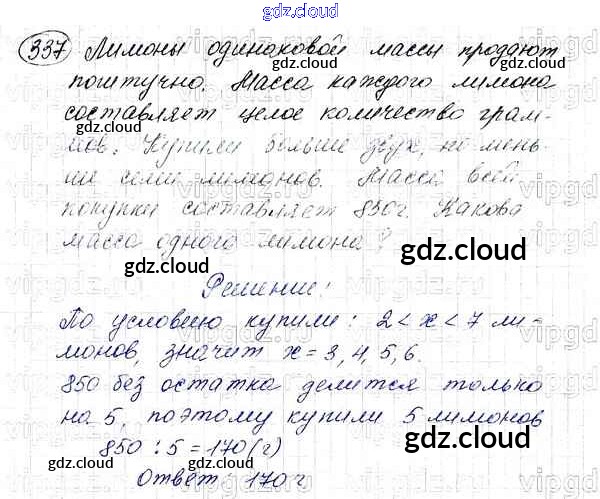 gdz.cloud
337 Лимоны одинаковой массы продают
поштучно. Масса каждого лимона
составляет целое количество грам-
gdz.cloud gdz.cloud
мов. Купили больше двух, но мень-
ше семи лимонов. Масса всей
покупки составляет 850г. Какова
масса одного лимона?
gdz.cloud
gdz.cloud
Решение:
По условию купили: 2 < x < 7 ли-
монов, значит x = 3, 4, 5, 6.
gdz.cloud gdz.cloud
850 без остатка делится только
на 5, поэтому купили 5 лимонов
850 : 5 = 170 (г)
gdz.cloud
gdz.cloud
Ответ: 170 г